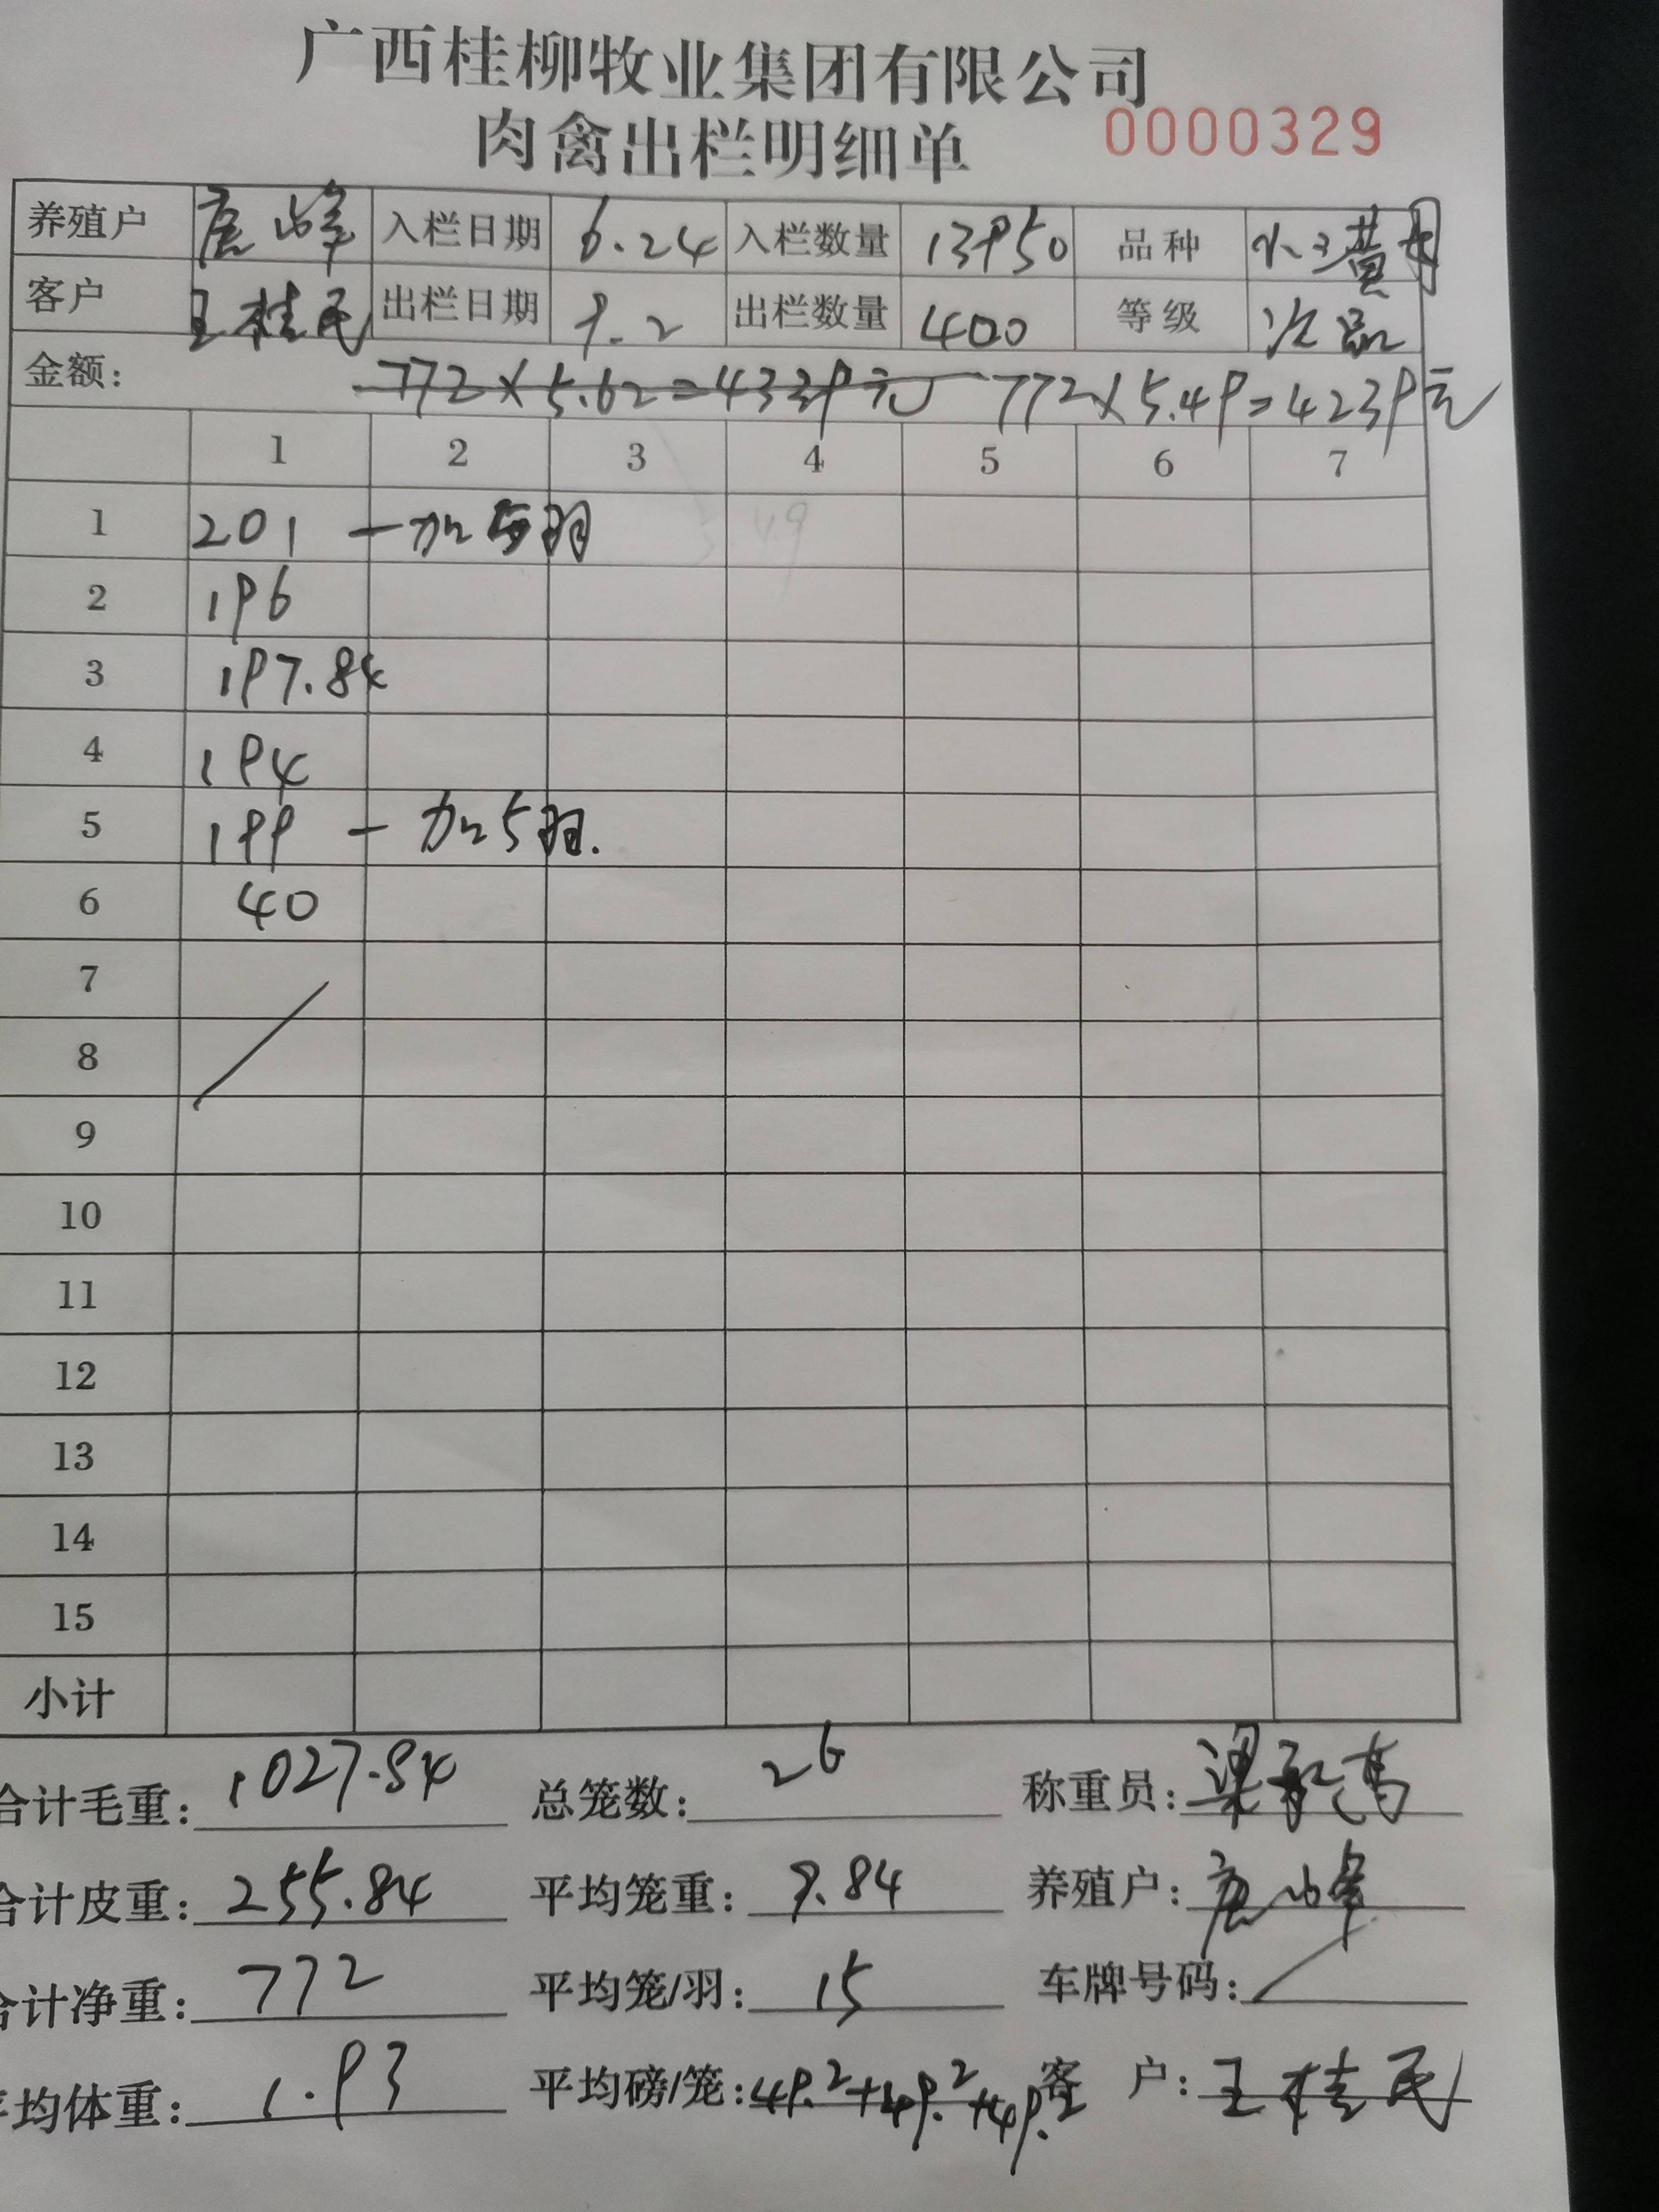 广西桂柳牧业集团有限公司
肉禽出栏明细单 0000329
养殖户 唐峰 入栏日期 6.24 入栏数量 13950 品种
客户 王桂民 出栏日期 9.2 出栏数量 400 等级 次品
金额: 772×5.62=4339元 772×5.49=4239元
1 2 3 4 5 6 7
1 201 一加5羽 5.49
2 196
3 197.84
4 194
5 199 一加5羽.
6 40
7
8
9
10
11
12
13
14
15
小计
合计毛重: 1027.84 总笼数: 26 称重员:
合计皮重: 255.84 平均笼重: 9.84 养殖户: 唐峰
合计净重: 772 平均笼/羽: 15 车牌号码: /
平均体重: 1.93 平均磅/笼: 49.2+49.2+49.2 客户: 王桂民